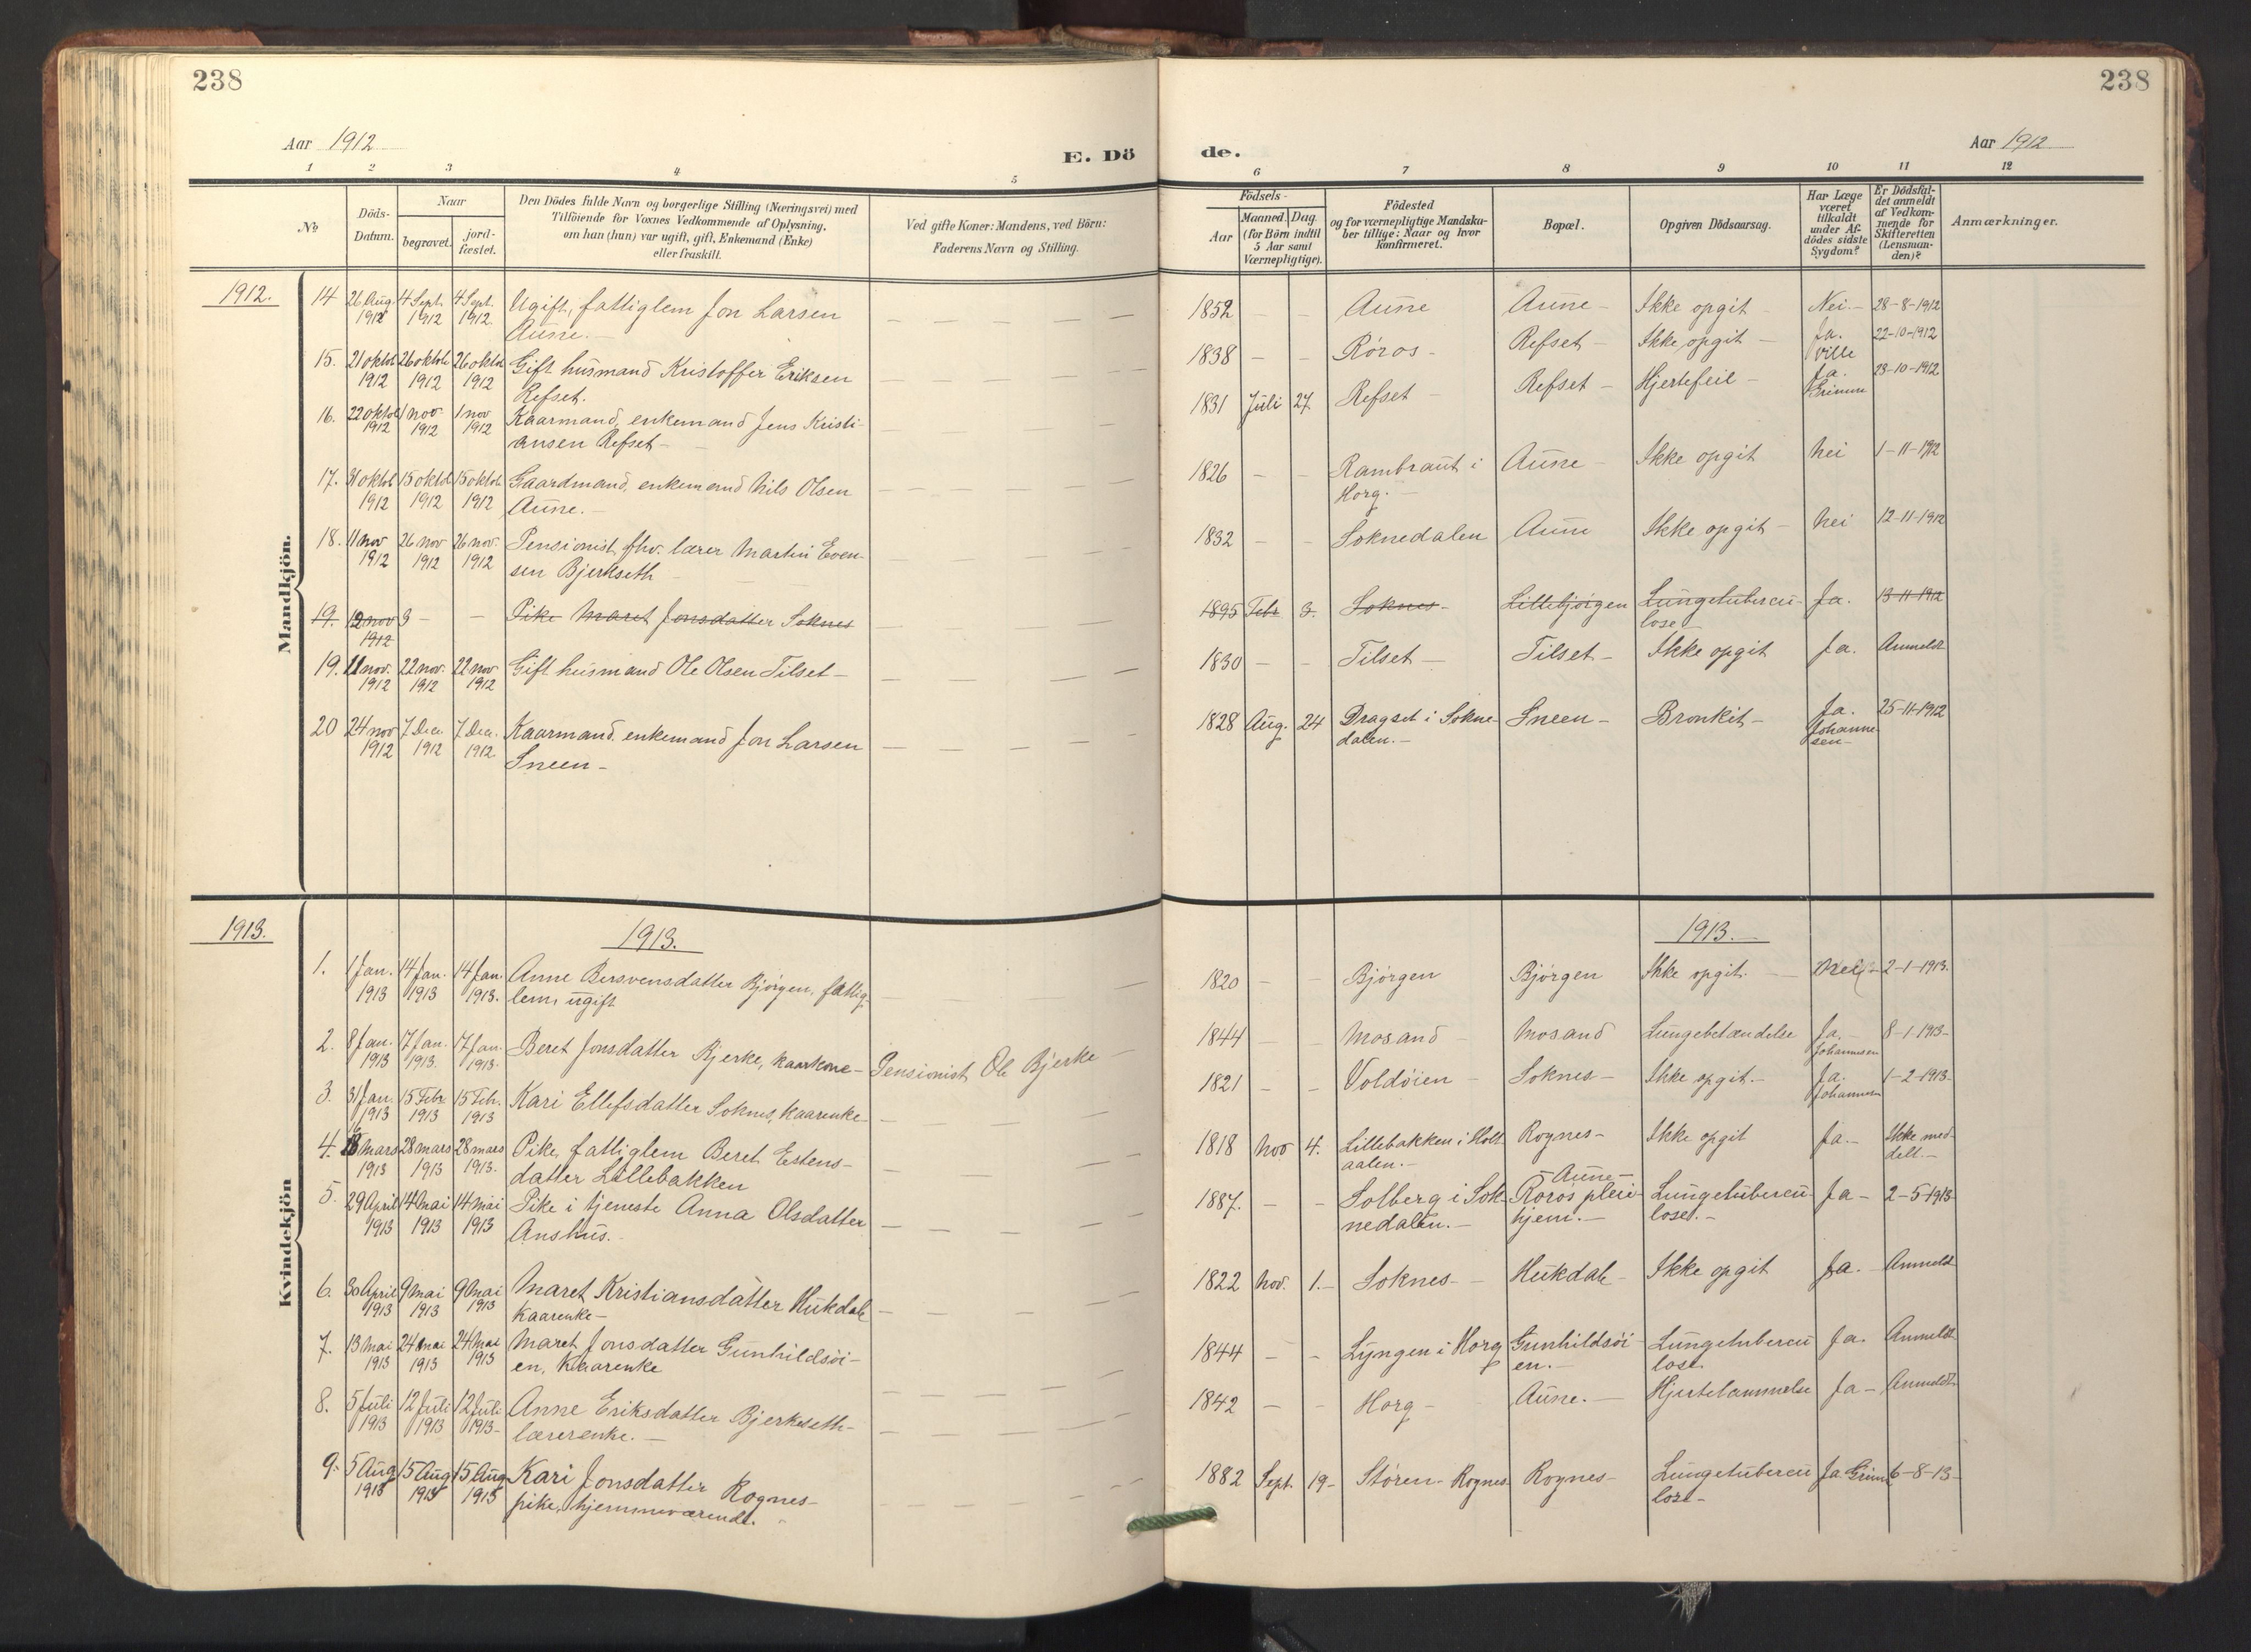 238
238
Aar 1912
E. Dö
de.
Aar 1912
1 2 3 4 5 6 7 8 9 10 11 12
No
Döds-
Datum.
Naar
begravet.
jord-
fæstet.
Den Dödes fulde Navn og borgerlige Stilling (Næringsvei) med
Tilföiende for Voxnes Vedkommende af Oplysning,
om han (hun) var ugift, gift, Enkemand (Enke)
eller fraskilt.
Ved gifte Koner: Mandens, ved Börn:
Faderens Navn og Stilling.
Födsels-
Aar
Maaned. Dag.
(for Börn indtil
5 Aar samt
Værnepligtige).
Födested
og for værnepligtige Mandska-
ber tillige: Naar og hvor
konfirmeret.
Bopæl.
Opgiven Dödsaarsag.
Har Læge
været
tilkaldt
under Af-
dödes sidste
Sygdom?
Er Dödsfal-
det anmeldt
af Vedkom-
mende for
Skifteretten
(Lensman-
den)?
Anmærkninger.
Mandkjön.
1912.
14 26 Aug. 4 Sept. 4 Sept. Ugift, fattiglem Jon Larsen 1852 - - Aune Aune - Ikke opgit - Nei. - 28-8-1912
1912 1912 1912. Aune. -
15. 21 oktob 26 oktob 26 oktob Gift husmand Kristoffer Eriksen 1838 - - Røros - Refset - Ikke opgit - Ja. 22-10-1912
1912 1912 1912 Refset. Ville
16. 22 oktob 1 nov 1 nov Kaarmand, enkemand Jens Kristi- 1831 Juli 27. Refset - Refset - Hjertefeil - Ja. 23-10-1912
1912 1912 1912 ansen Refset - Grimm
17. 31 oktob 15 oktob 15 oktob. Gaardmand, enkemand Nils Olsen 1826 - - Rambraut i Aune - Ikke opgit Nei 1-11-1912
1912 1912 1912 Aune. - Horg. -
18. 11 nov 26 nov 26 nov. Pensionist, fhv. lærer Martin Even- 1832 - - Soknedalen Aune Ikke opgit - Nei 12-11-1912
1912 1912 1912 sen Bjerkseth -
19. 12 nov 3 - - Pike Maret Jonsdatter Soknes 1895 Febr 3. Soknes - Lillebjørgen Lungetubercu- Ja. 13-11-1912
1912 lose
19. 11 nov. 22 nov. 22 nov Gift husmand Ole Olsen Tilset - 1830 - - Tilset - Tilset - Ikke opgit Ja. Anmeldt
1912 1912 1912
20 24 nov 7 Dec. 7 Dec. Kaarmand. enkemand Jon Larsen 1828 Aug. 24 Dragset i Sokne- Sneen - Bronkit - Ja. 25-11-1912
1912 1912 1912 Sneen - dalen. - Johanne-
sen -
Kvindekjön
1913.
1913.
1913.
1. 1 Jan. 14 Jan. 14 Jan. Anne Bersvensdatter Bjørgen, fattig- 1820 - - Bjørgen Bjørgen Ikke opgit. - Nei - 2-1-1913.
1913 1913 1913. lem, ugift
2. 8 Jan. 17 Jan. 17 Jan. Beret Jonsdatter Bjerke, kaarkone - Pensionist Ole Bjerke 1844 - - Mosand - Mosand Lungebetændelse Ja. - 8-1-1913-
1913 1913. 1913. Johannesen
3. 31 Jan. 15 Febr 15 Feb. Kari Ellefsdatter Soknes, kaarenke - 1821 - - Voldøien - Soknes - Ikke opgit. - Ja. 1-2-1913-
1913 1913 1913 Johannesen
4. 18 mars 28 mars 28 mars Pike, fattiglem Beret Estens- 1818 Nov 4. Lillebakken i Holt- Rognes - Ikke opgit Ja. - Ikke med-
1913 1913 1913. datter Lillebakken aalen. - delt. -
- Aune -
5. 29 April 14 Mai 14 Mai Pike i tjeneste Anna Olsdatter 1887. - - Solberg i Sok- Røros pleie- Lungetubercu- Ja - 2-5-1913
1913 1913 1913 Anshus. nedalen. - hjem. - lose. -
6. 30 April 9 Mai 9 Mai Maret Kristiansdatter Hukdale 1822 Nov. 1. - Soknes - Hukdale - Ikke opgit Ja. - Anmeldt
1913 1913 1913 Kaarenke -
7. 13 Mai 24 Mai 24 Mai Maret Jonsdatter Gunhildsøi- 1844 - - Lyngen i Horg Gunhildsøi- Lungetubercu Ja. Anmeldt
1913 1913 1913 en, Kaarenke en. - lose.
8. 5 Juli 12 Juli 12 Juli Anne Eriksdatter Bjerkeseth - 1842 - - Horg - Aune. - Hjertelammelse Ja - Anmeldt
1913 1913 1913- lærerenke. -
9. 5 Aug 15 Aug 15 Aug Kari Jonsdatter Rognes - 1882 Sept. 19- Støren - Rognes Rognes - Lungetubercu Ja Grimm 6-8-13-
1913 1913 1913 pike, hjemmeværende. lose -